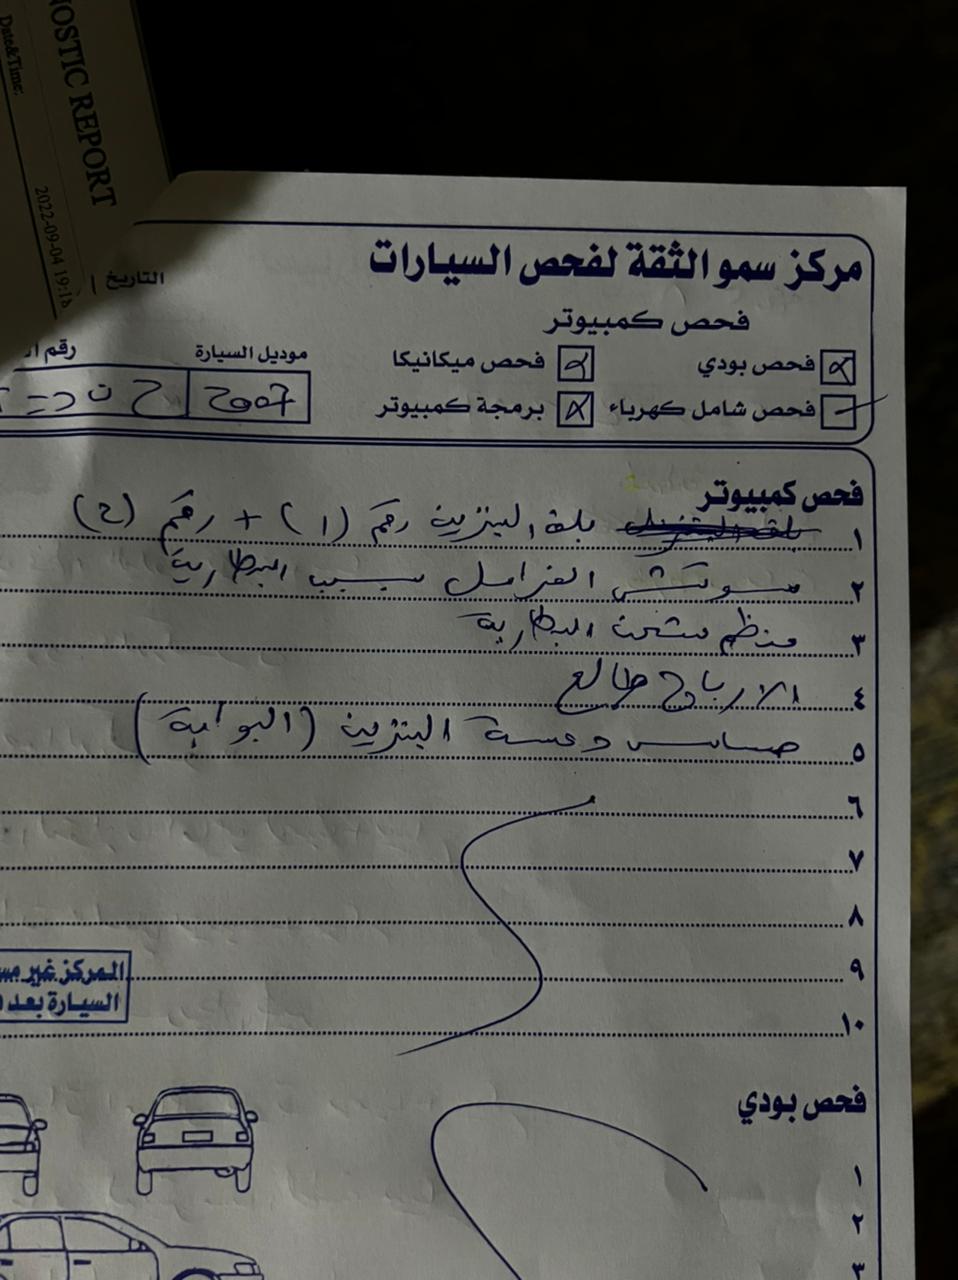 NOSTIC REPORT
Date&Time:
2022-09-04 19:18
مركز سمو الثقة لفحص السيارات
التاريخ
فحص كمبيوتر
فحص بودي
فحص ميكانيكا
موديل السيارة
رقم
فحص شامل كهرباء
برمجة كمبيوتر
2007
فحص كمبيوتر
١ بلف البنزين رقم (١) + رقم (2)
٢ سوتش الفرامل بسبب البطارية
٣ منظم شحن البطارية
٤ الارباج طالع
٥ حساس دعسة البنزين (البوابة)
٦
٧
٨
٩
المركز غير
١٠
السيارة بعد
فحص بودي
١
٢
٣